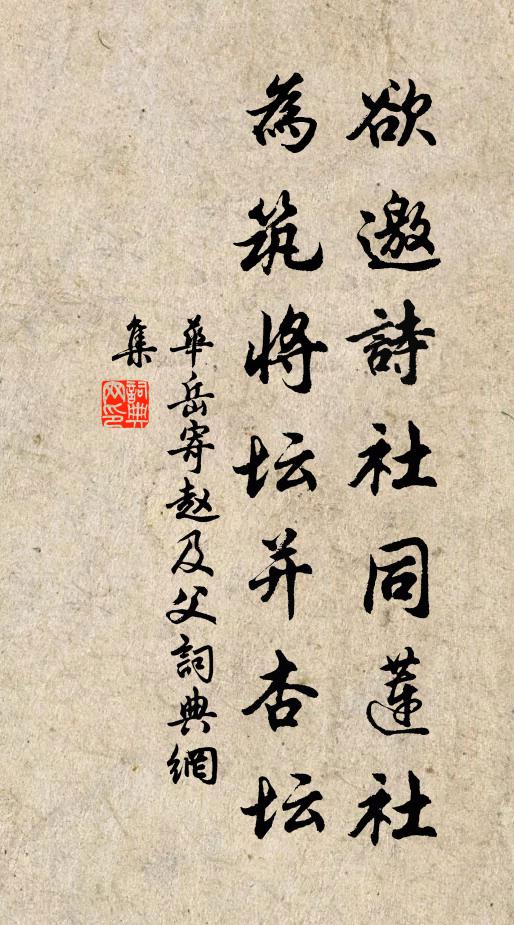 欲邀詩社同蓮社
為筑將坛并杏坛
華岳寄赵及父詞典網
集
詞典
网印